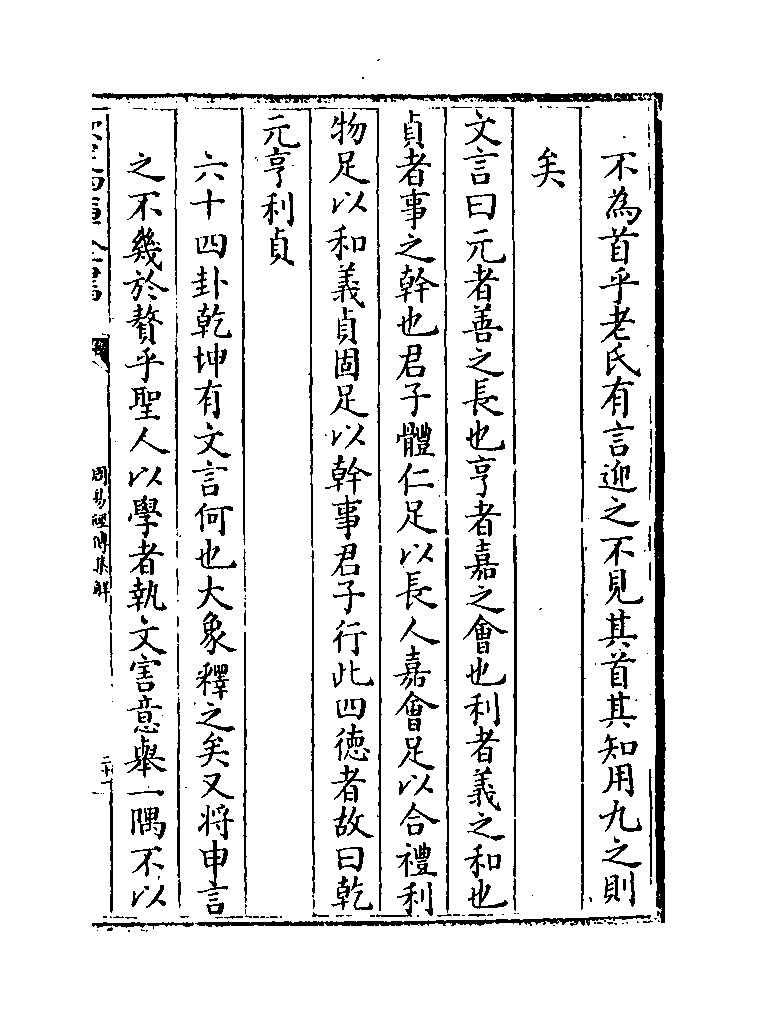 不為首乎老氏有言迎之不見其首其知用九之則
矣
文言曰元者善之長也亨者嘉之會也利者義之和也
貞者事之幹也君子體仁足以長人嘉會足以合禮利
物足以和義貞固足以幹事君子行此四徳者故曰乾
元亨利貞
六十四卦乾坤有文言何也大象釋之矣又将申言
之不幾於贅乎聖人以學者執文害意舉一隅不以
周易經傳集解